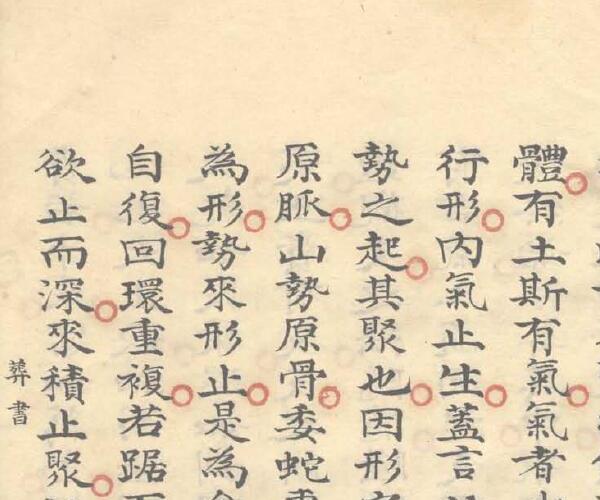 體有土斯有氣氣者
行形內氣止生蓋言
勢之起其聚也因形
原脈山勢原骨委蛇
為形勢來形止是為
自復回環重複若踞
欲止而深來積止聚
葬書